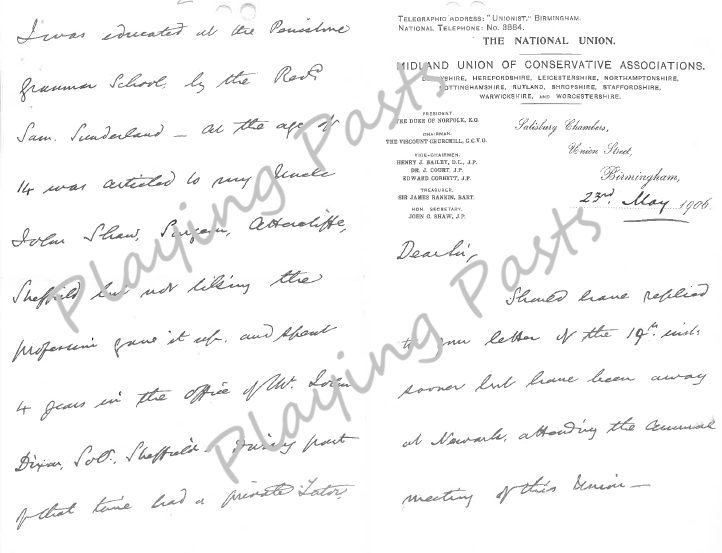 I was educated at the Penistone
Grammar School, by the Revd
Sam. Sunderland — At the age of
14 was articled to my Uncle
John Shaw, Surgeon, Attercliffe,
Sheffield but not liking the
profession gave it up. and spent
4 years in the office of Mr. John
Dixon, Solr. Sheffield. During part
of that time had a private Tutor.
TELEGRAPHIC ADDRESS: "UNIONIST," BIRMINGHAM.
NATIONAL TELEPHONE: No. 3884.
THE NATIONAL UNION.
MIDLAND UNION OF CONSERVATIVE ASSOCIATIONS.
DERBYSHIRE, HEREFORDSHIRE, LEICESTERSHIRE, NORTHAMPTONSHIRE,
NOTTINGHAMSHIRE, RUTLAND, SHROPSHIRE, STAFFORDSHIRE,
WARWICKSHIRE, AND WORCESTERSHIRE.
PRESIDENT:
THE DUKE OF NORFOLK, K.G.
CHAIRMAN:
THE VISCOUNT CHURCHILL, G.C.V.O.
VICE-CHAIRMEN:
HENRY J. BAILEY, D.L., J.P.
DR. J. COURT, J.P.
EDWARD CORBETT, J.P.
TREASURER:
SIR JAMES RANKIN, BART.
HON. SECRETARY:
JOHN C. SHAW, J.P.
Salisbury Chambers,
Union Street,
Birmingham,
23rd May 1906
Dear Sir,
Should have replied
to your letter of the 19th inst:
sooner but have been away
at Newark, attending the Annual
meeting of this Union —
Playing Pasts
Playing Pasts